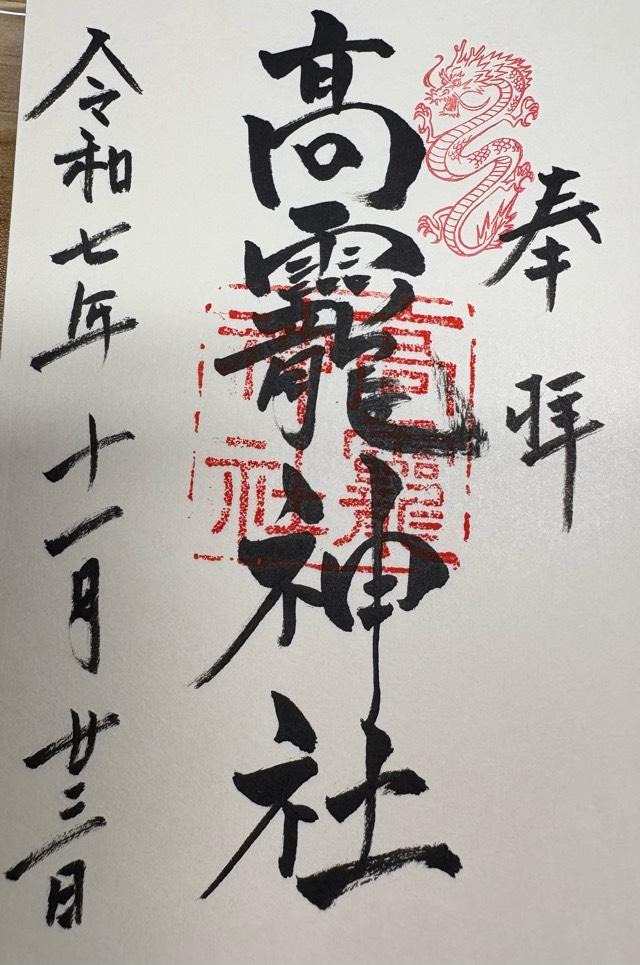 奉拝
高龗神社
高龗
神社
令和七年十一月廿三日